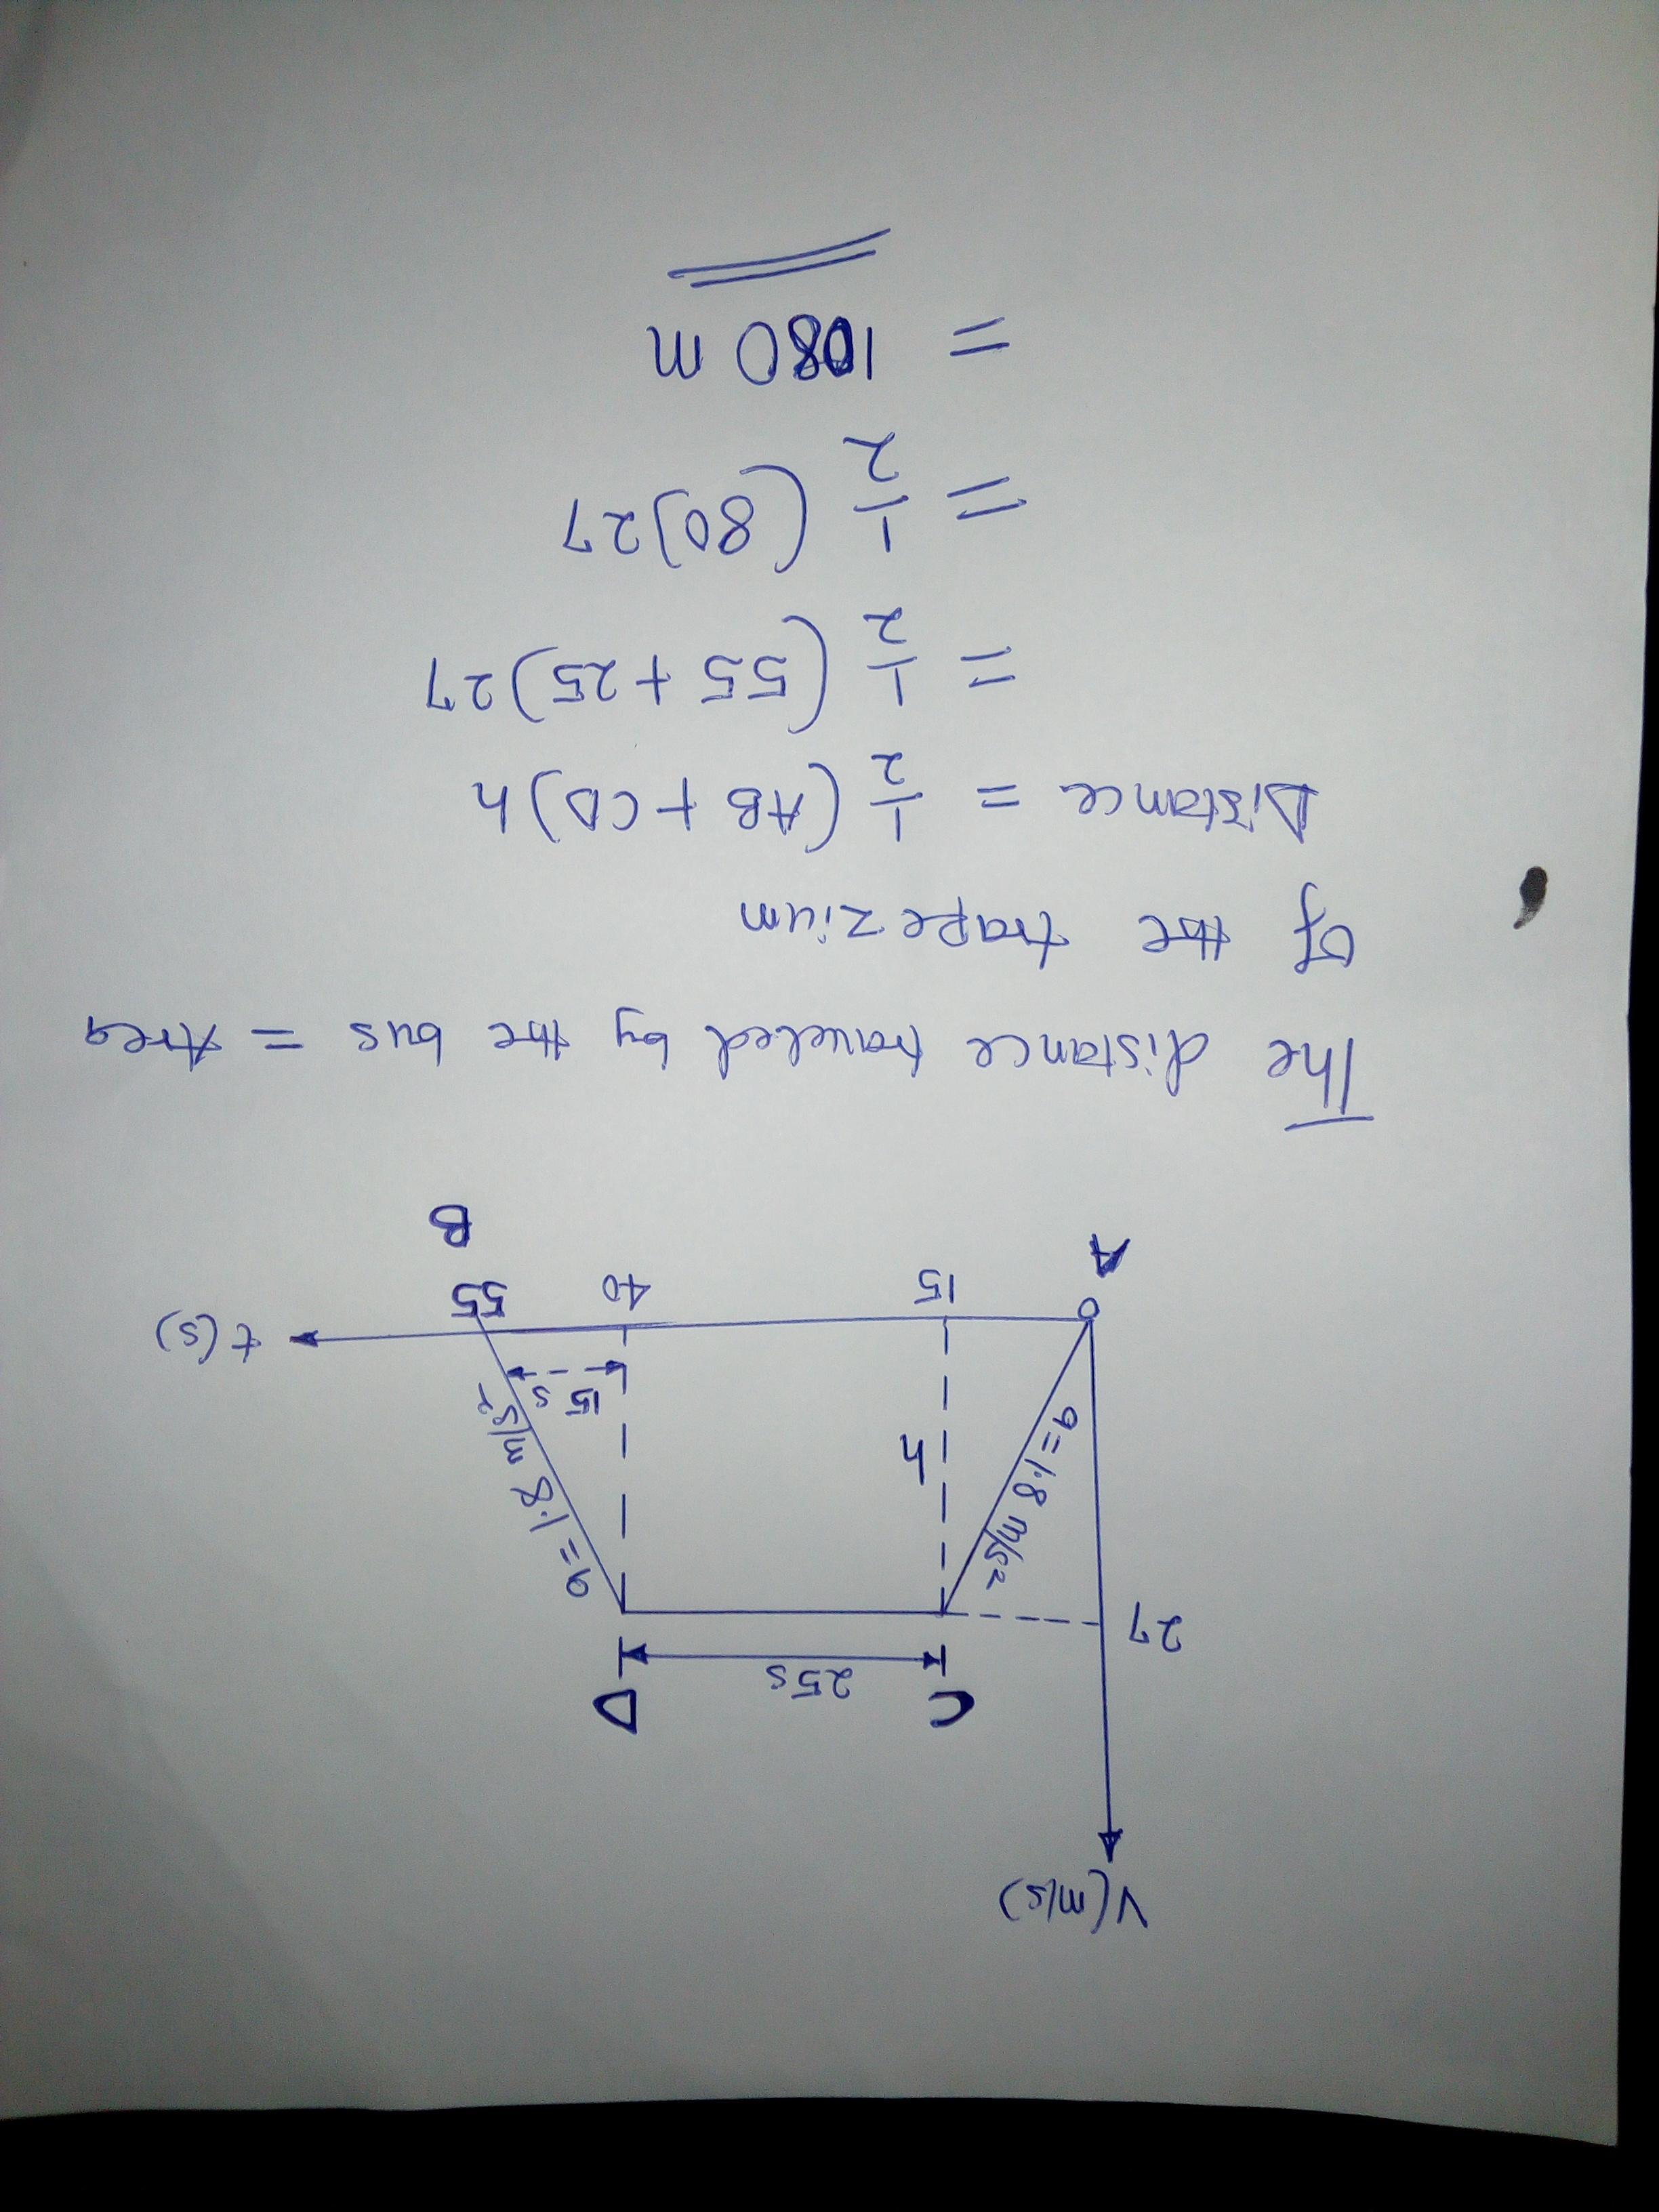 V(m/s)
C 25s D
27
a=1.8 m/s²
h
a=1.8 m/s²
15 s
t(s)
0 15 40 55
A B
The distance traveled by the bus = Area
of the trapezium
Distance = 1/2 (AB + CD)h
= 1/2 (55 + 25)27
= 1/2 (80)27
= 1080 m